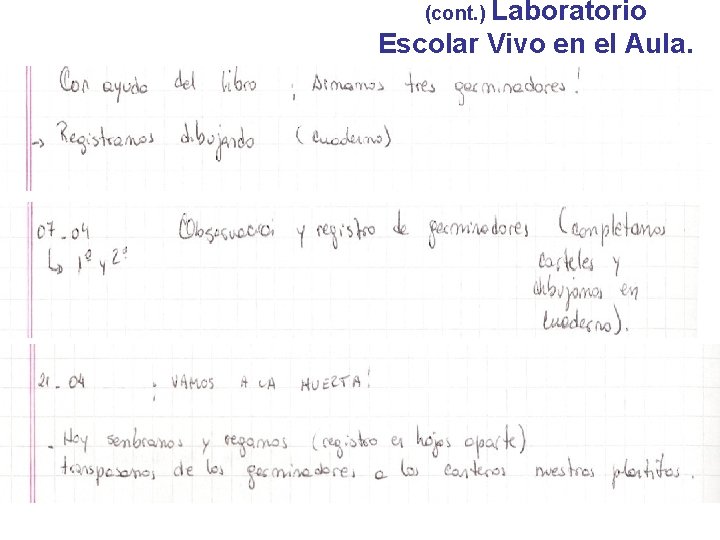 (cont.) Laboratorio
Escolar Vivo en el Aula.
Con ayuda del libro ¡ Armamos tres germinadores!
→ Registramos dibujando (cuaderno)
07-04 Observación y registro de germinadores (completamos
↳ 1º y 2º carteles y
dibujamos en
cuaderno).
21-04 ¡ VAMOS A LA HUERTA!
- Hoy sembramos y regamos (registro en hojas aparte)
transpasamos de los germinadores a los canteros nuestras plantitas.